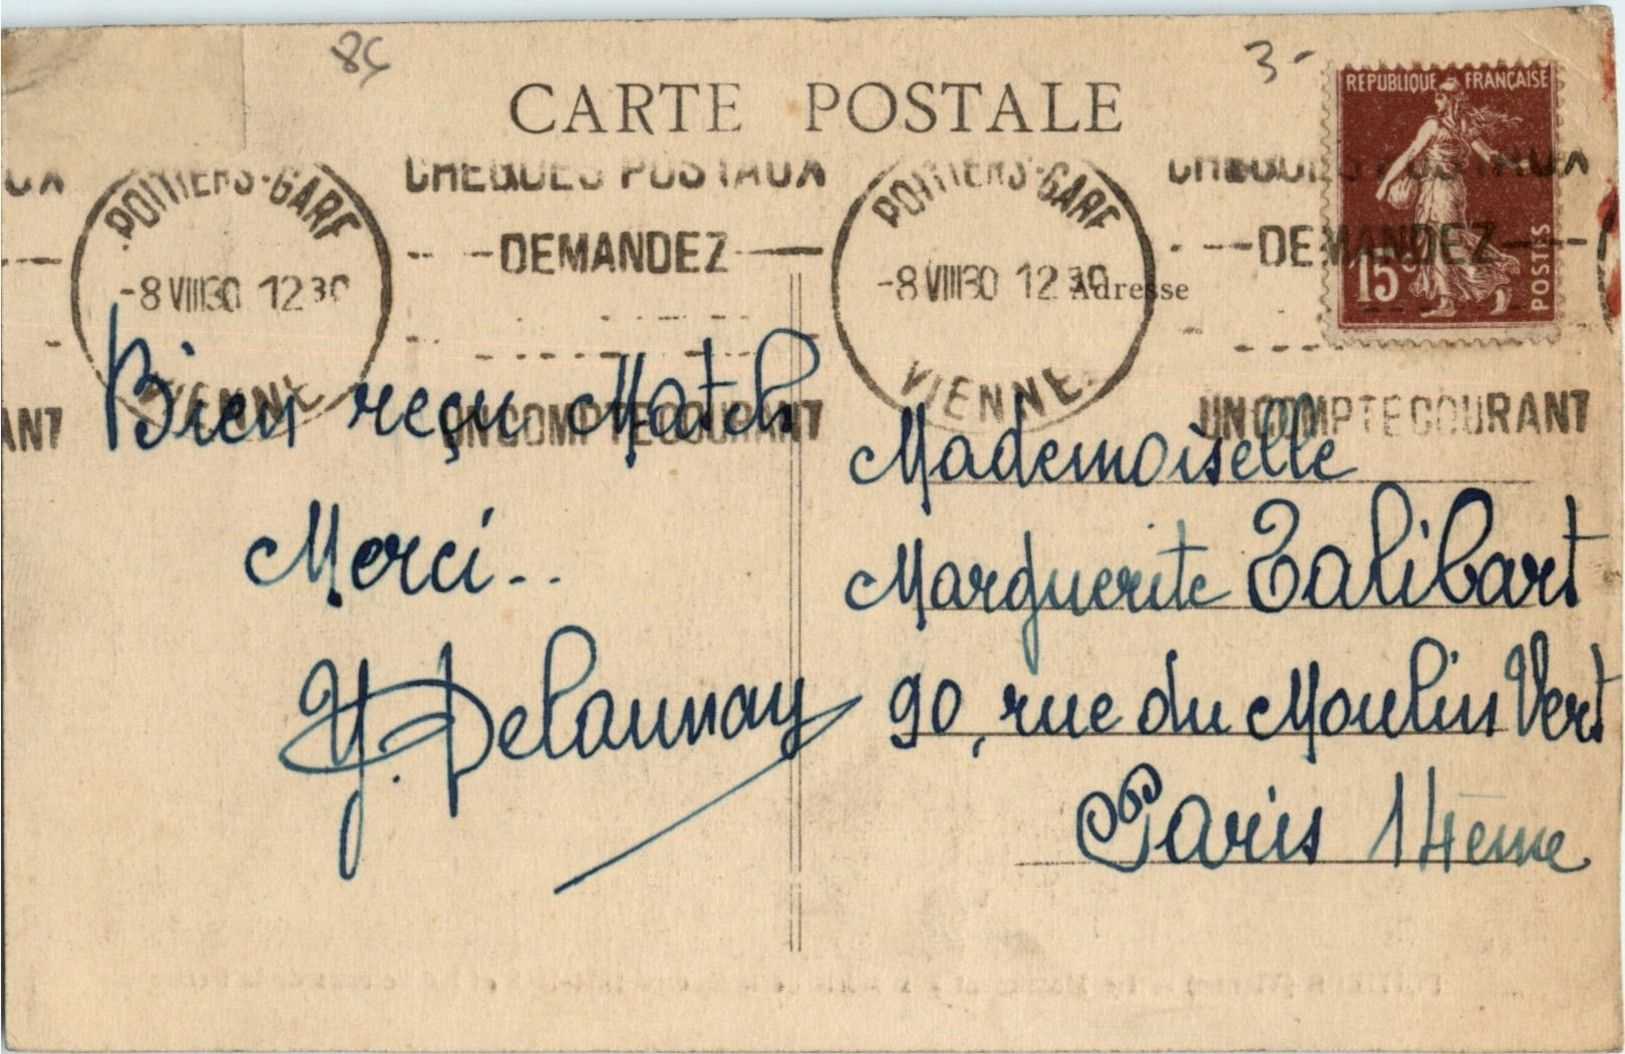 86
3-
CARTE POSTALE
REPUBLIQUE FRANÇAISE
15c
POSTES
UX
ANT
POITIERS-GARE
-8 VIII 30 12 30
VIENNE
CHEQUES POSTAUX
DEMANDEZ
UN COMPTE COURANT
POITIERS-GARE
-8 VIII 30 12 30
VIENNE
CHEQUES POSTAUX
DEMANDEZ
UN COMPTE COURANT
Adresse
Bien reçu Match
Merci..
Y. Delaunay
Mademoiselle
Marguerite Talibart
90, rue du Moulin Vert
Paris 14ème